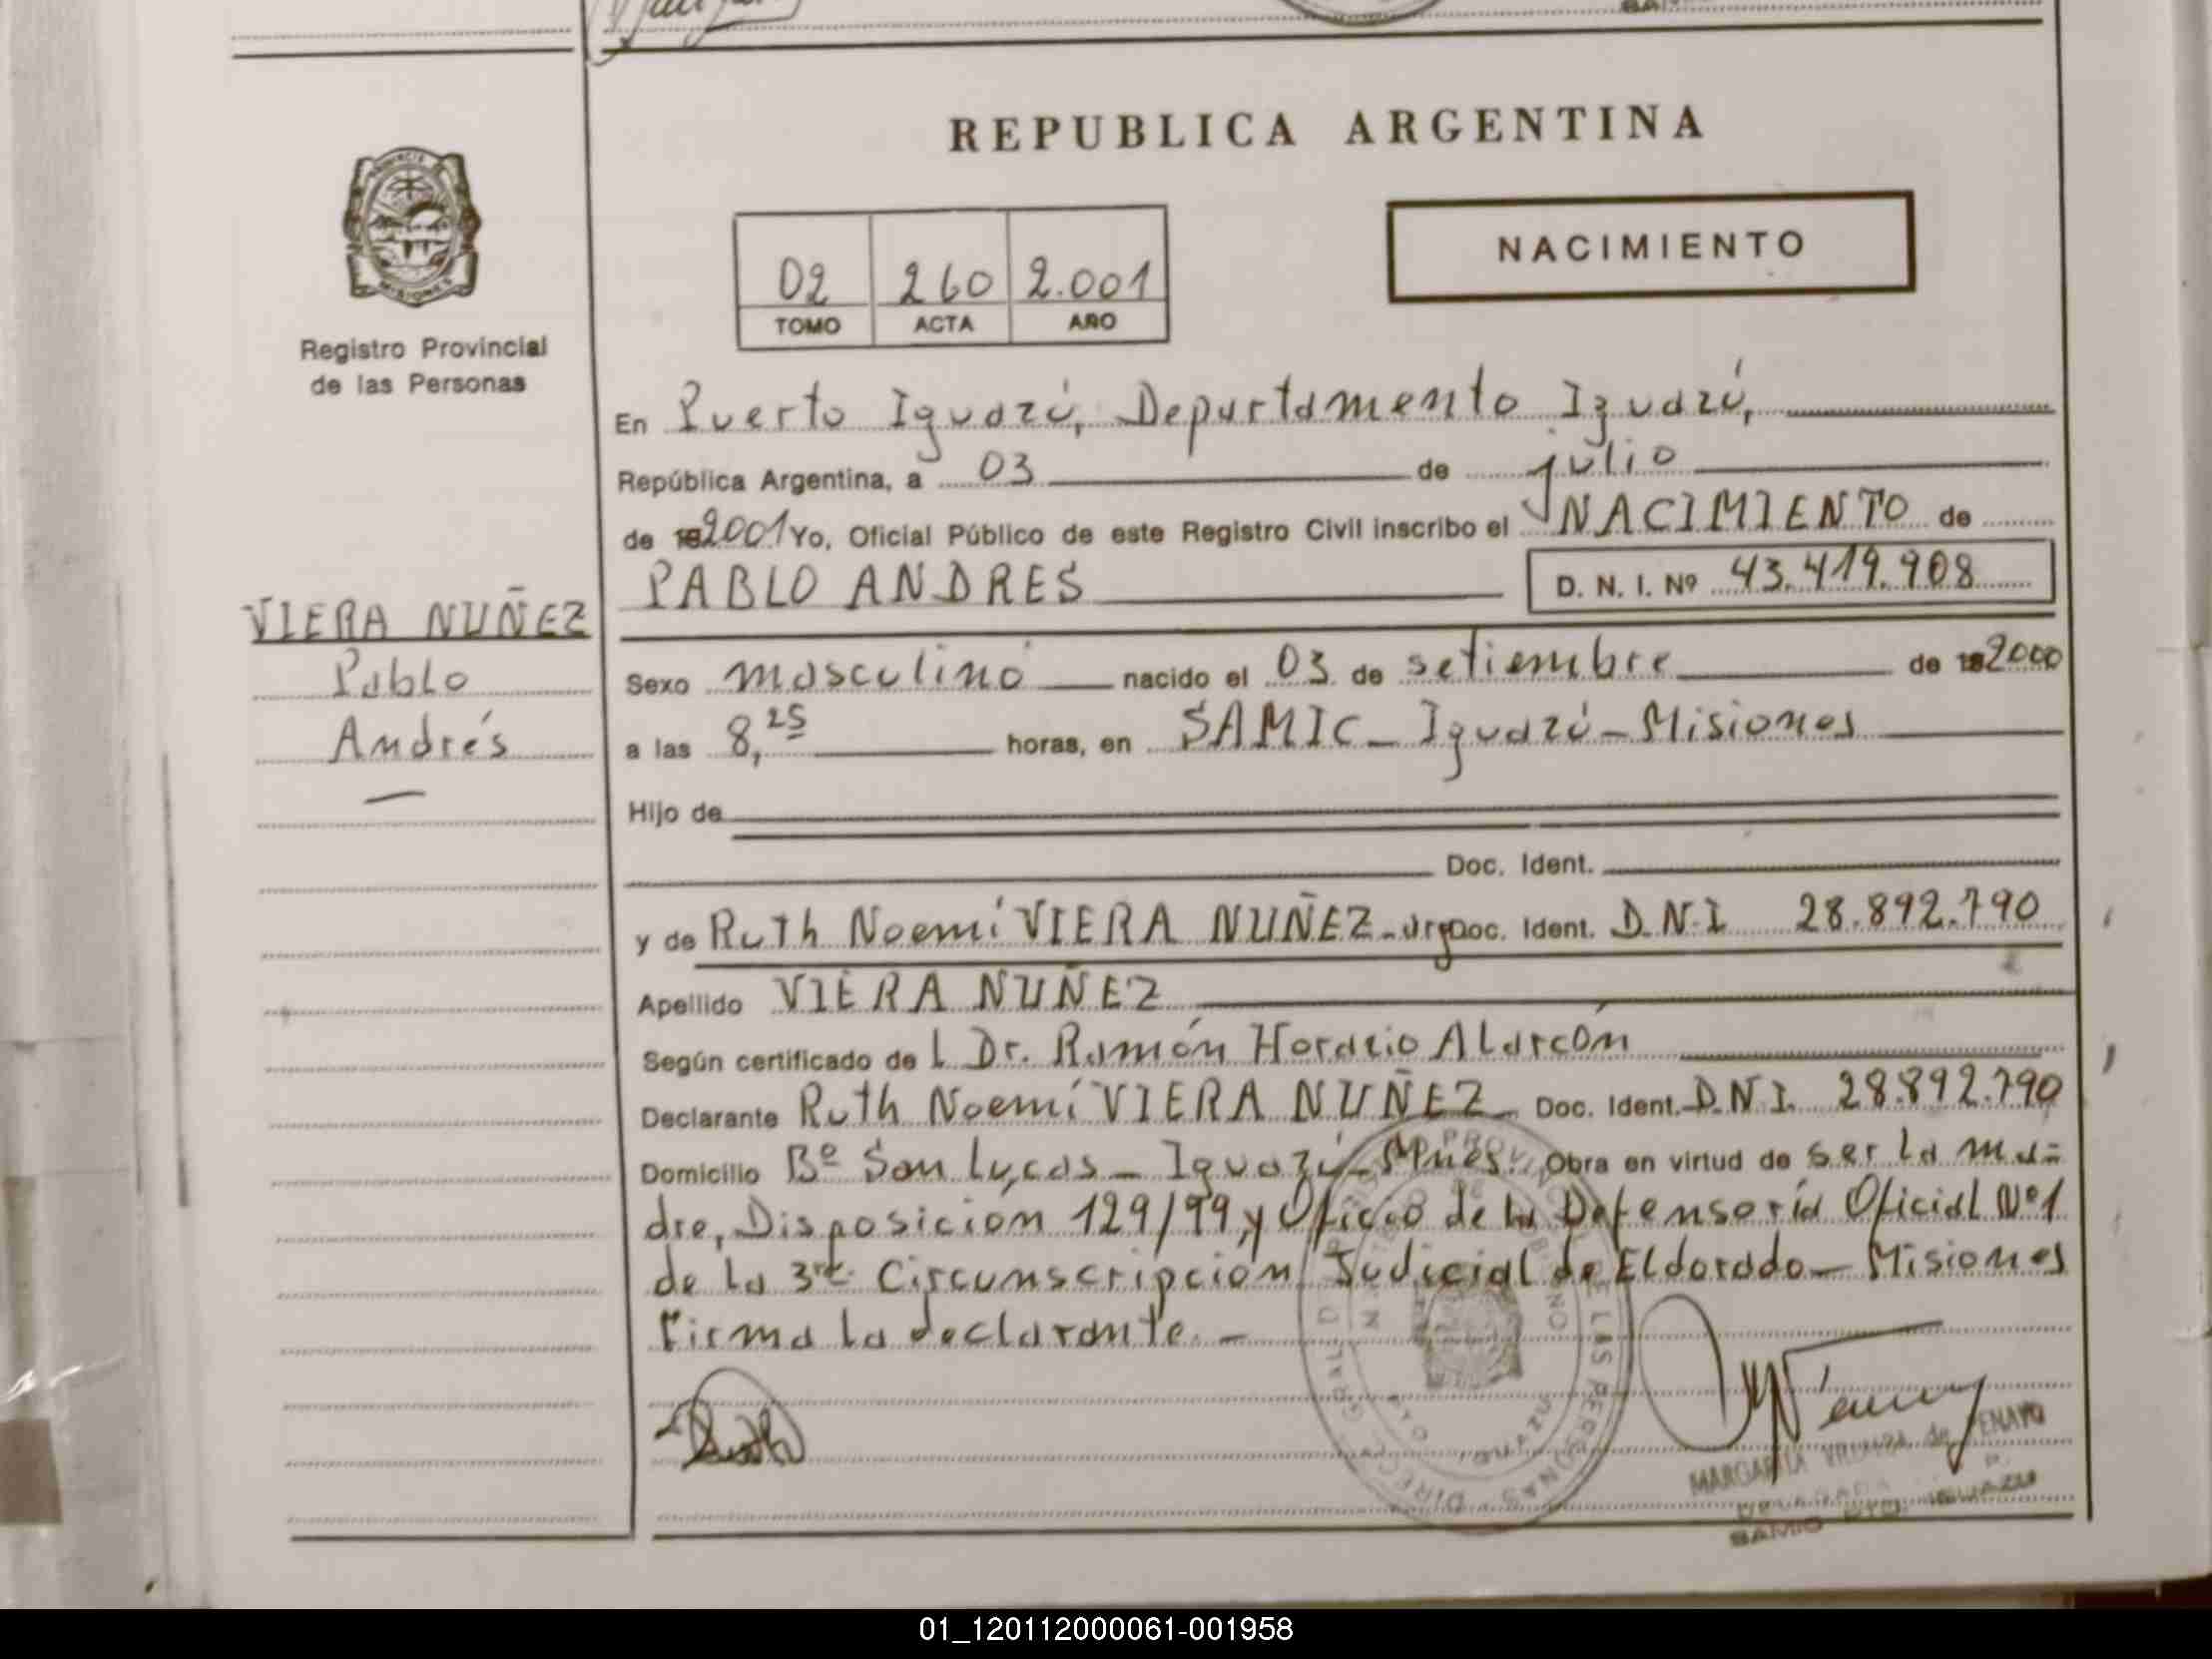 REPUBLICA ARGENTINA
NACIMIENTO
02 260 2.001
TOMO ACTA AÑO
PROVINCIA DE
MISIONES
Registro Provincial
de las Personas
VIERA NUÑEZ
Pablo
Andrés
En Puerto Iguazú, Departamento Iguazú,
República Argentina, a 03 de julio
de 2001 Yo, Oficial Público de este Registro Civil inscribo el NACIMIENTO de
PABLO ANDRES D. N. I. Nº 43.419.908
Sexo masculino nacido el 03 de setiembre de 2000
a las 8,25 horas, en SAMIC - Iguazú - Misiones
Hijo de
Doc. Ident.
y de Ruth Noemí VIERA NUÑEZ - arg Doc. Ident. D.N.I 28.892.790
Apellido VIERA NUÑEZ
Según certificado de l Dr. Ramón Horacio Alarcón
Declarante Ruth Noemí VIERA NUÑEZ Doc. Ident. D.N.I. 28.892.790
Domicilio Bº San Lucas - Iguazú - Mnes. Obra en virtud de ser la ma=
dre, Disposición 129/99, y Oficio de la Defensoría Oficial Nº1
de la 3ra Circunscripción Judicial de Eldorado - Misiones
Firma la declarante. -
MARGARITA de PENAYO
DELEGADA
SAMIC PTO. IGUAZU
01_120112000061-001958